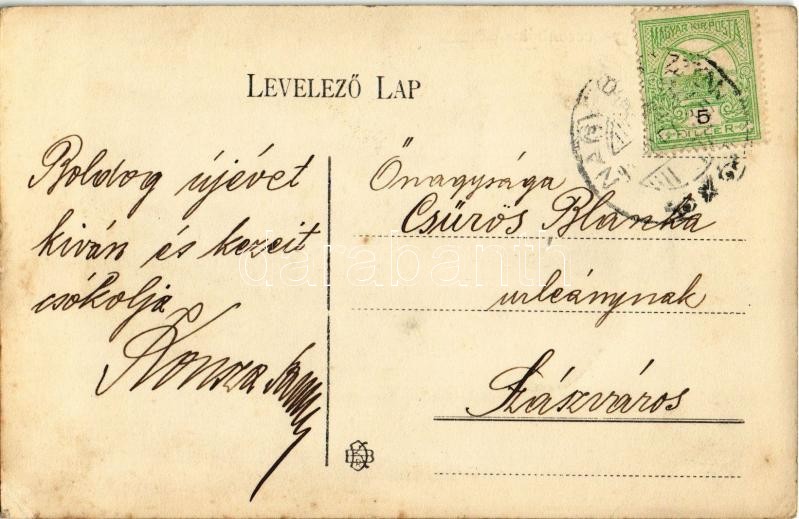 LEVELEZŐ LAP
MAGYAR KIR. POSTA
5
FILLÉR
Boldog újévet
kiván és kezeit
csókolja
Kónsza
Őnagysága
Csűrös Blanka
urleánynak
Szászváros
darabanth